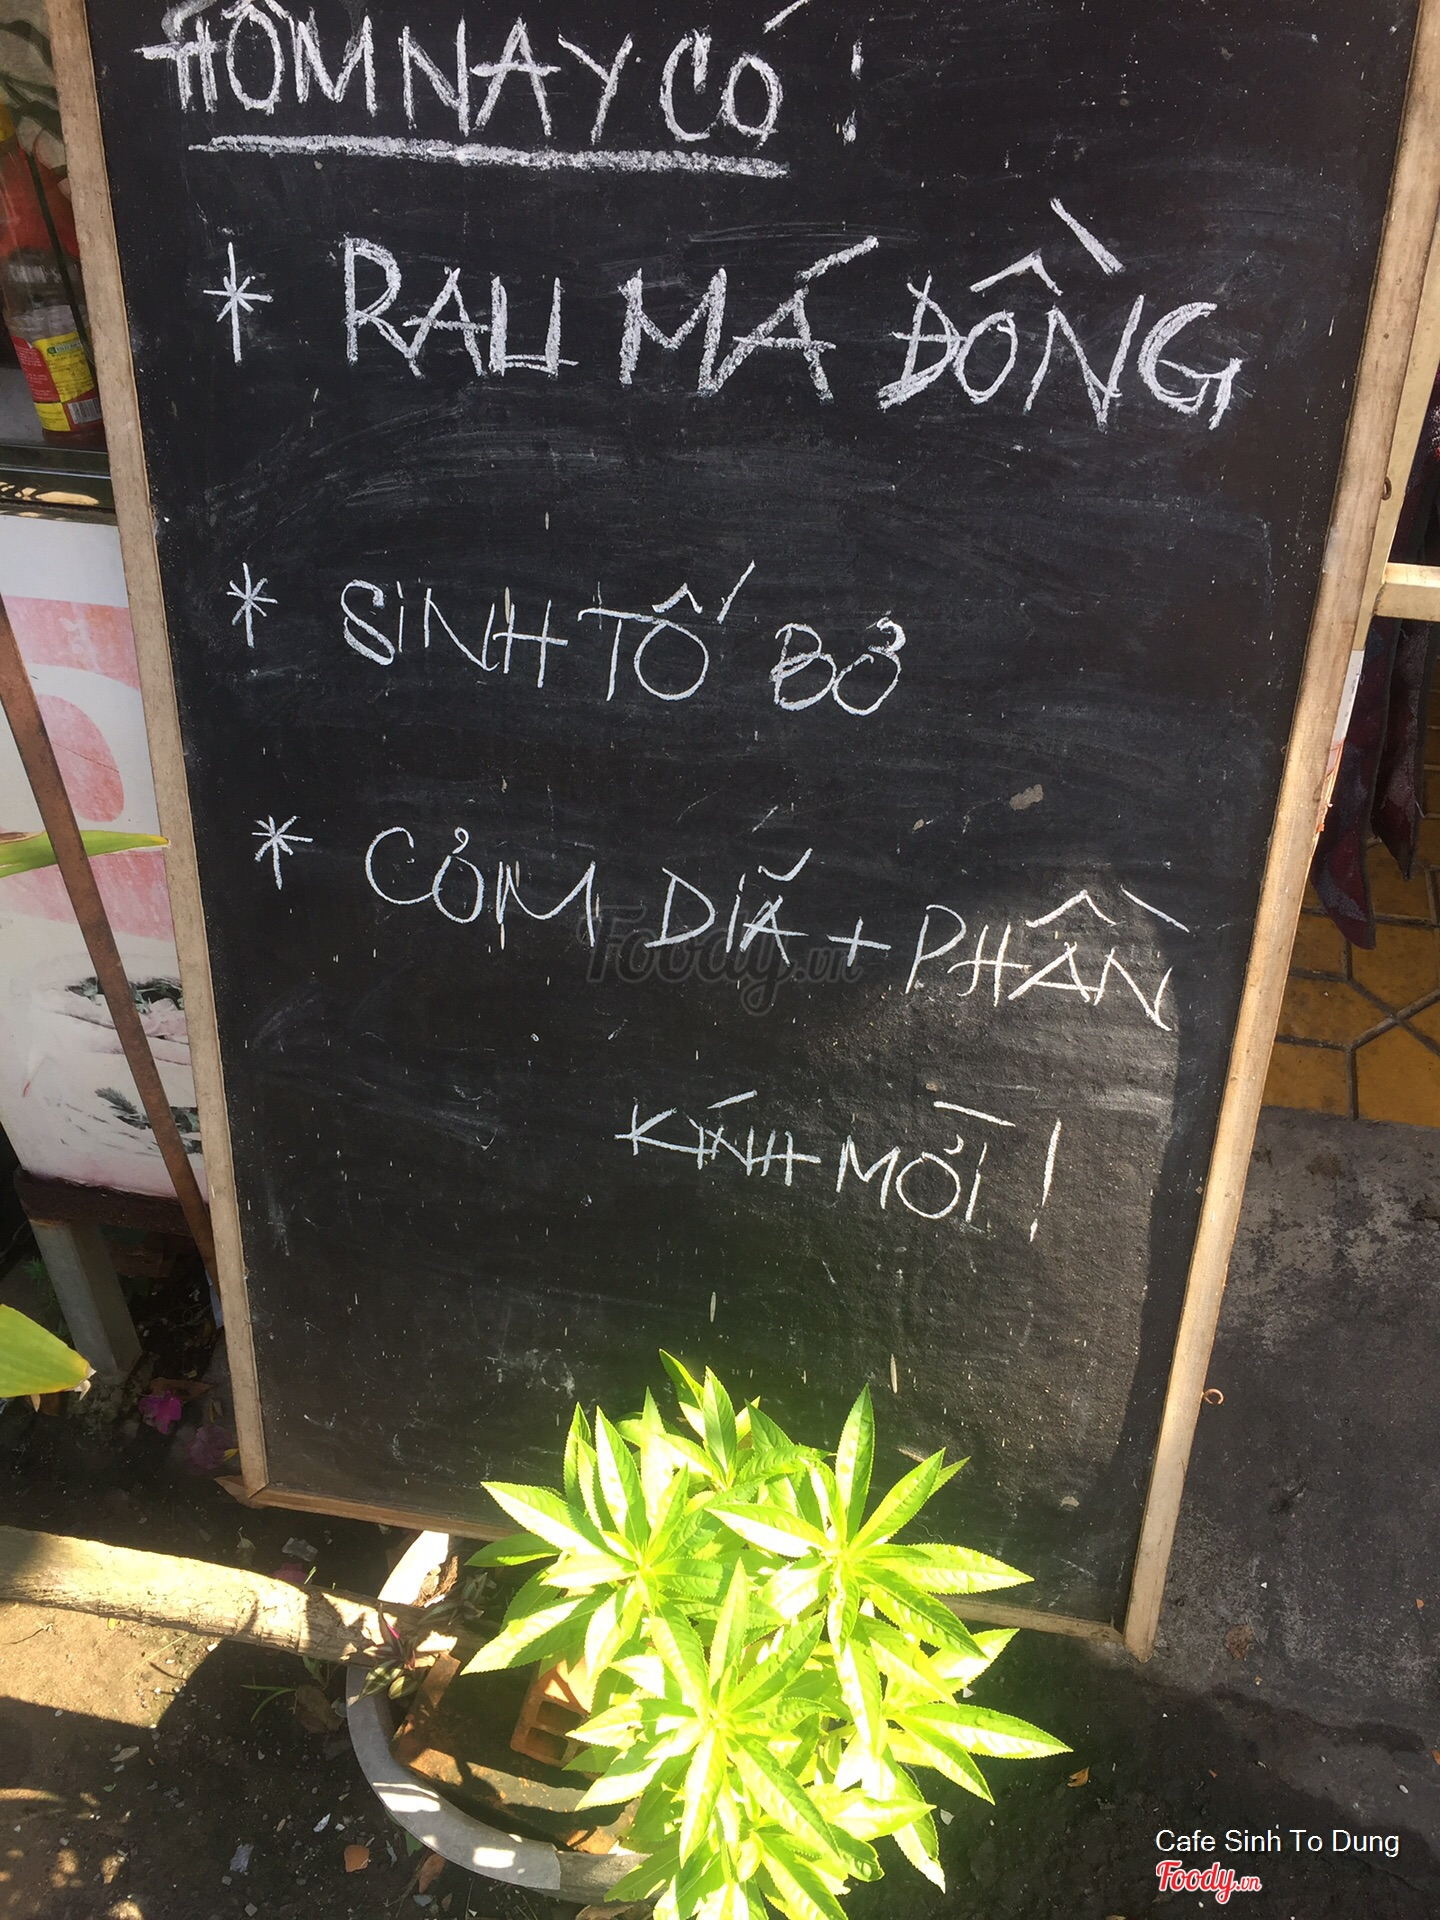 HÔM NAY CÓ :
* RAU MÁ ĐỒNG
* SINH TỐ BƠ
* CƠM DĨA + PHẦN
KÍNH MỜI !
Foody.vn
Cafe Sinh To Dung
Foody.vn